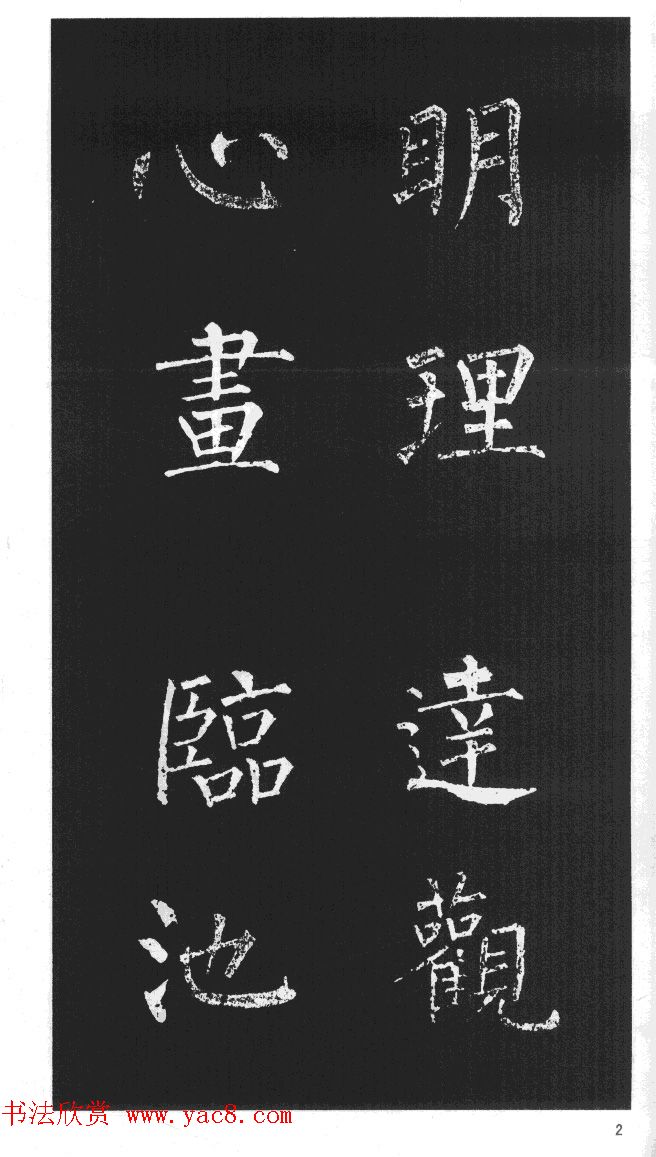 明理達觀
心畫臨池
书法欣赏 www.yac8.com
2